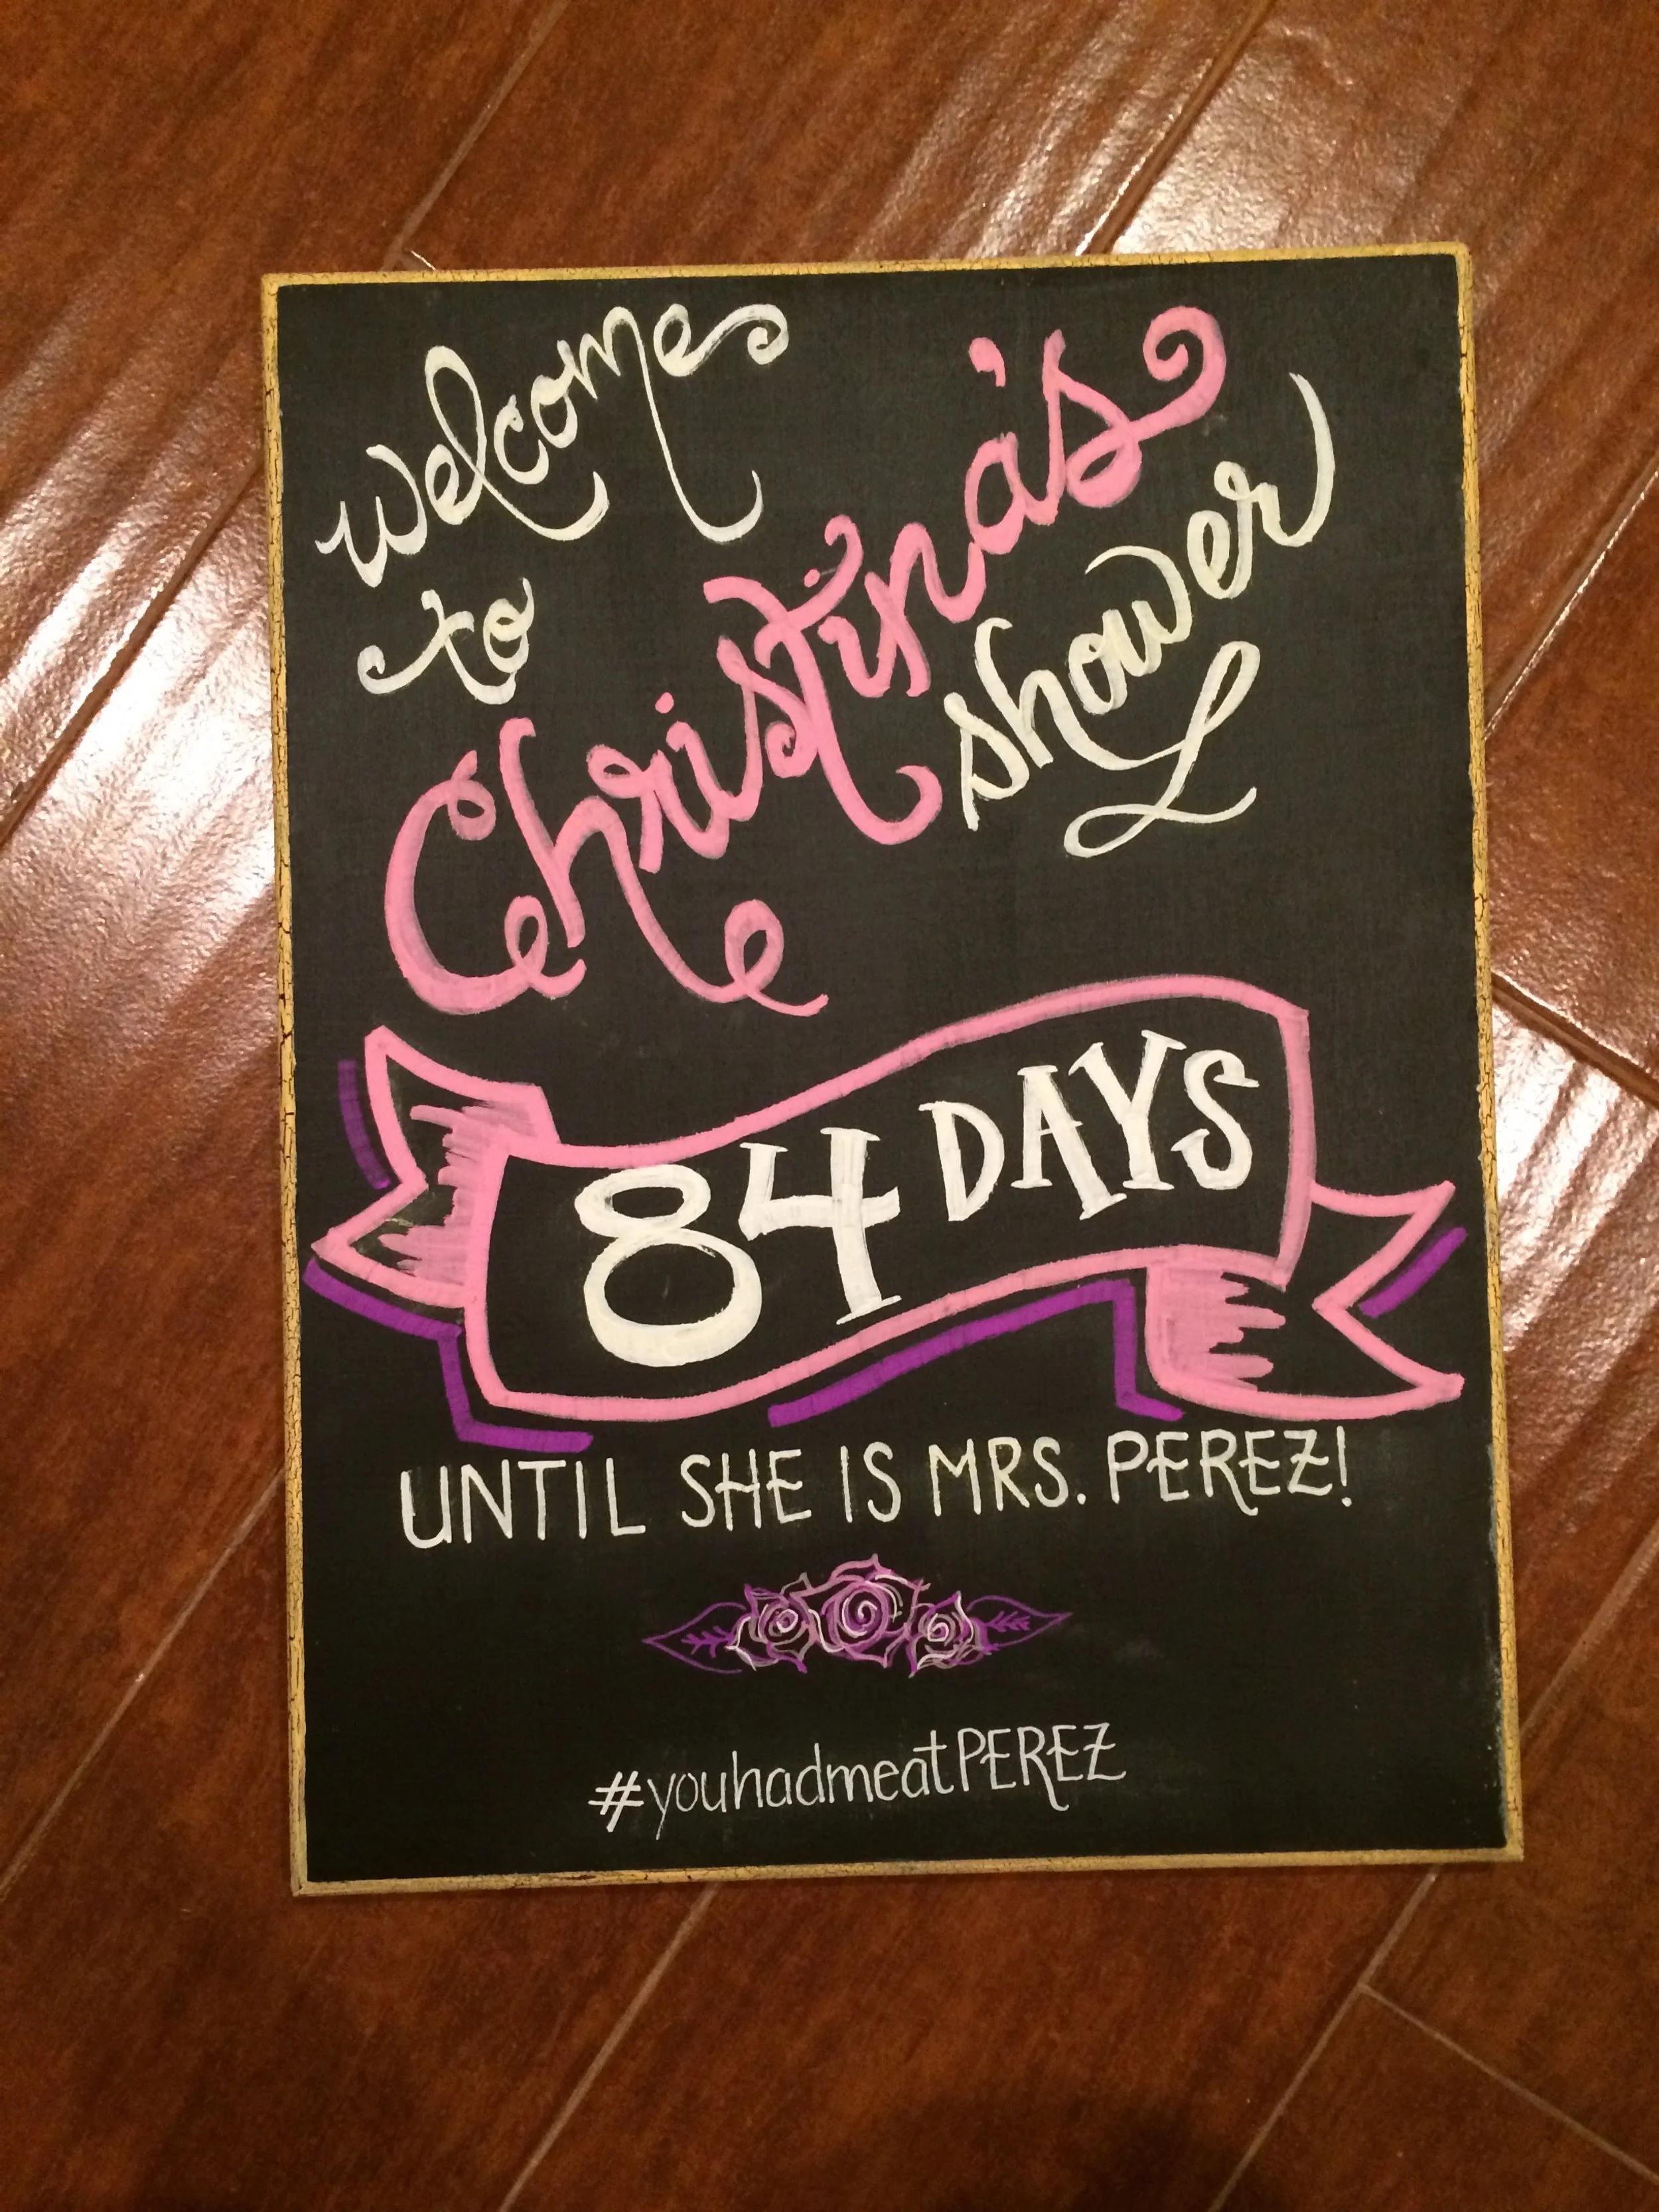 welcome
to
Christina's
shower
84 DAYS
UNTIL SHE IS MRS. PEREZ!
#youhadmeatPEREZ